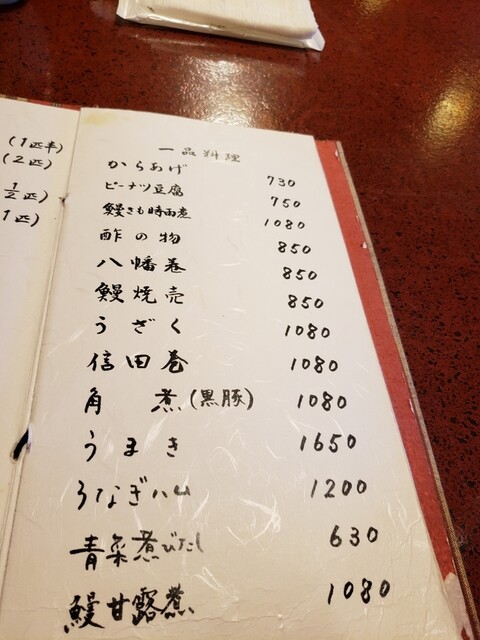 (1匹半)
(2匹)
1/2匹)
1匹)
一品料理
からあげ 730
ピーナツ豆腐 750
鰻きも時雨煮 1080
酢の物 850
八幡巻 850
鰻焼売 850
うざく 1080
信田巻 1080
角煮(黒豚) 1080
うまき 1650
うなぎハム 1200
青菜煮びたし 630
鰻甘露煮 1080